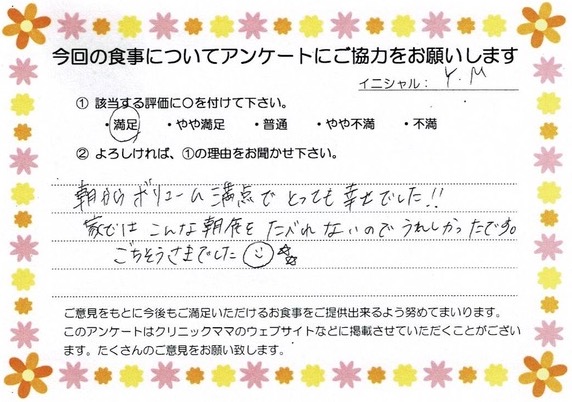 今回の食事についてアンケートにご協力をお願いします
イニシャル： Y.M
① 該当する評価に〇を付けて下さい。
・満足 ・やや満足 ・普通 ・やや不満 ・不満
② よろしければ、①の理由をお聞かせ下さい。
朝からボリューム満点でとっても幸せでした!!
家ではこんな朝食をたべれないのでうれしかったです。
ごちそうさまでした
ご意見をもとに今後もご満足いただけるお食事をご提供出来るよう努めてまいります。
このアンケートはクリニックママのウェブサイトなどに掲載させていただくことがござい
ます。たくさんのご意見をお願い致します。